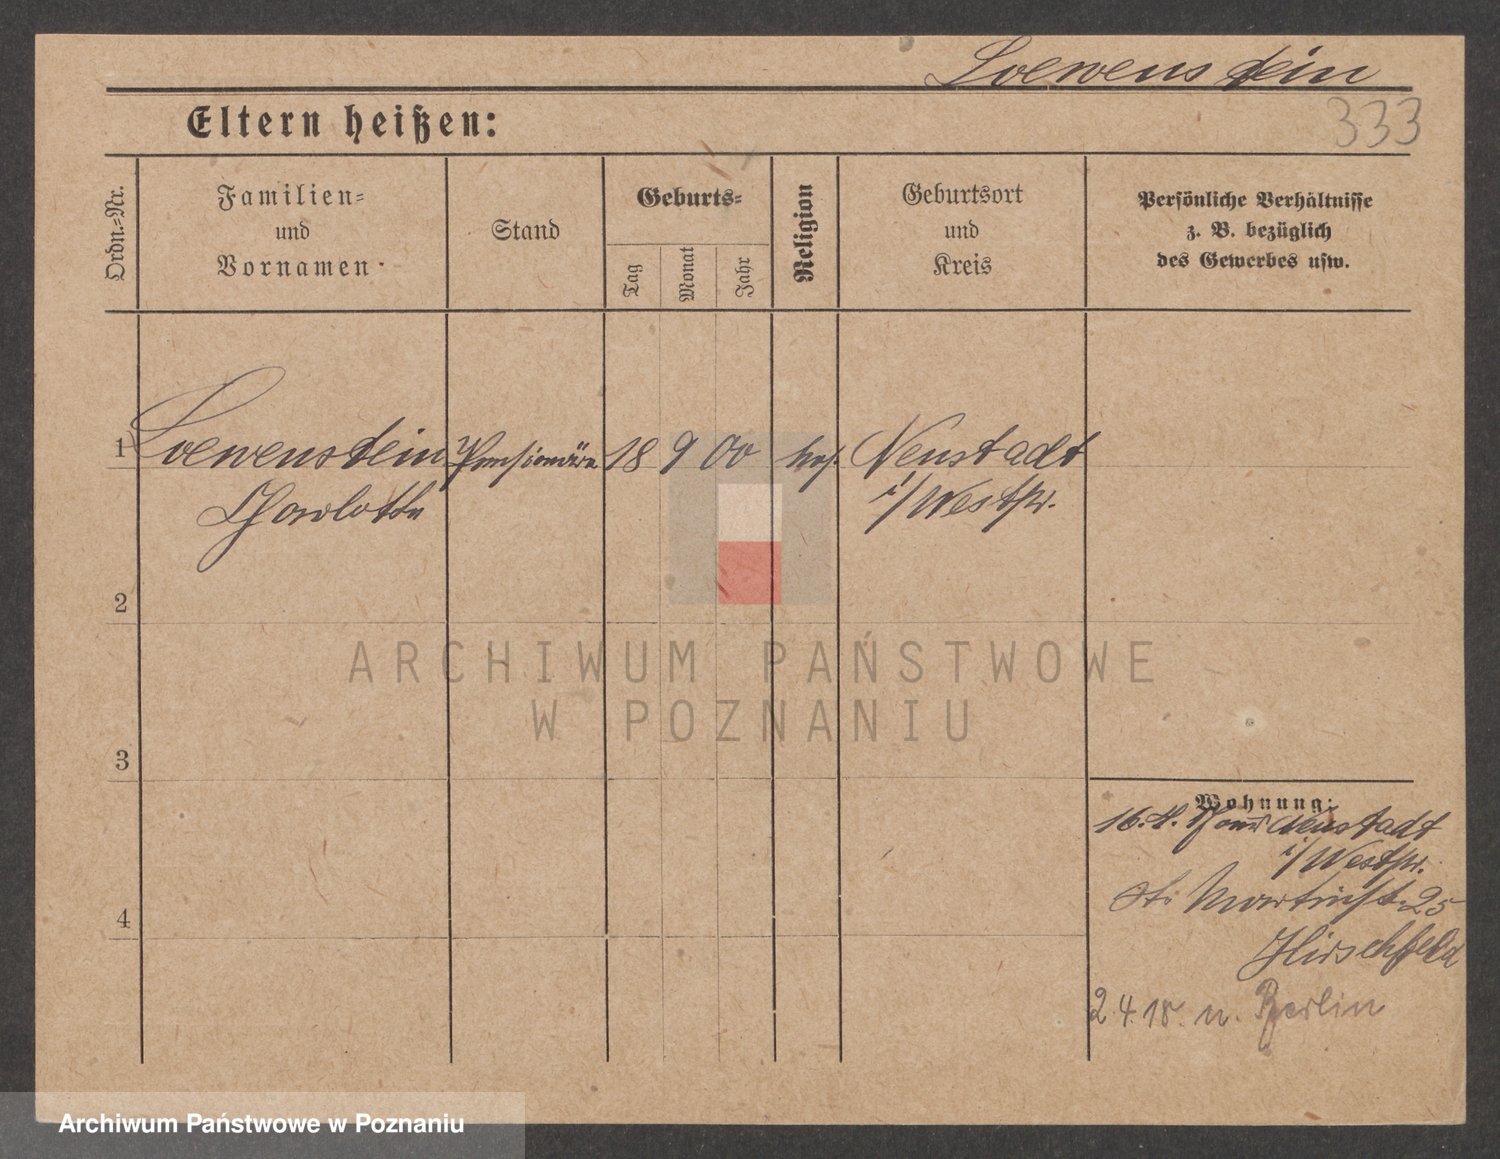 Loewenstein
333
Eltern heißen:
Ordn.-Nr.
Familien-
und
Vornamen
Stand
Geburts-
Tag
Monat
Jahr
Religion
Geburtsort
und
Kreis
Persönliche Verhältnisse
z. B. bezüglich
des Gewerbes usw.
1 Loewenstein Pensionärin 18 9 00 mos. Neustadt
Charlotte i/Westpr.
2
3
4
Wohnung:
16. Neustadt
i/Westpr.
St. Martinstr. 25
Hirschfeld
2.4.18. n. Berlin
ARCHIWUM PAŃSTWOWE
W POZNANIU
Archiwum Państwowe w Poznaniu